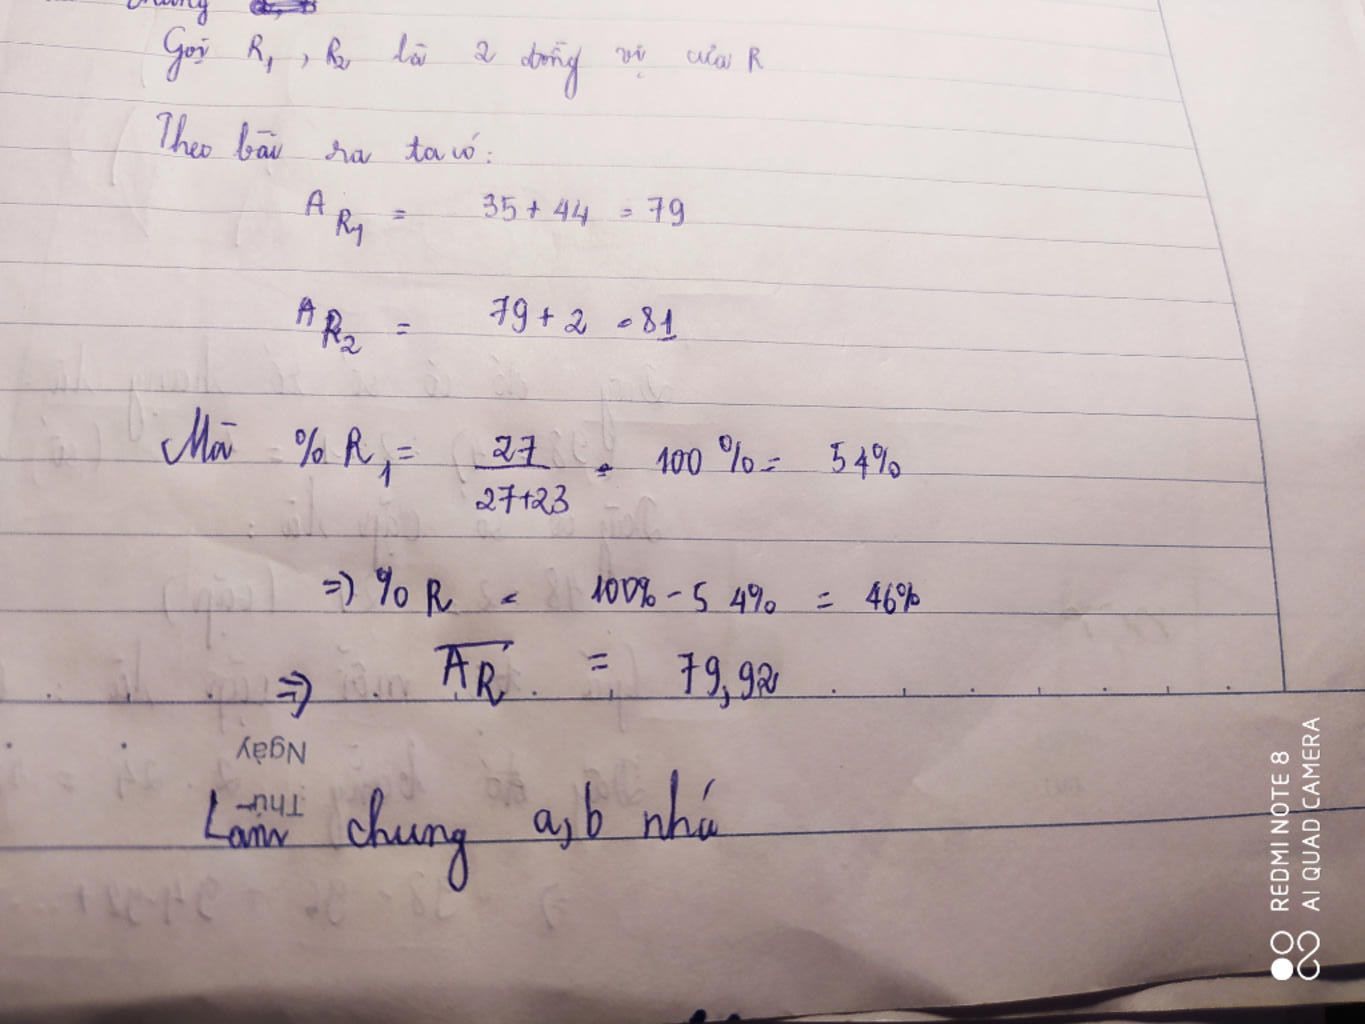 chung
Gọi R₁, R₂ là 2 đồng vị của R
Theo bài ra ta có:
A R₁ = 35 + 44 = 79
A R₂ = 79 + 2 = 81
Mà % R₁ = 27/27+23 . 100% = 54%
=> % R = 100% - 54% = 46%
=> A̅R̅ = 79,92
Ngày
Thứ
Làm chung a, b nhá
REDMI NOTE 8
AI QUAD CAMERA